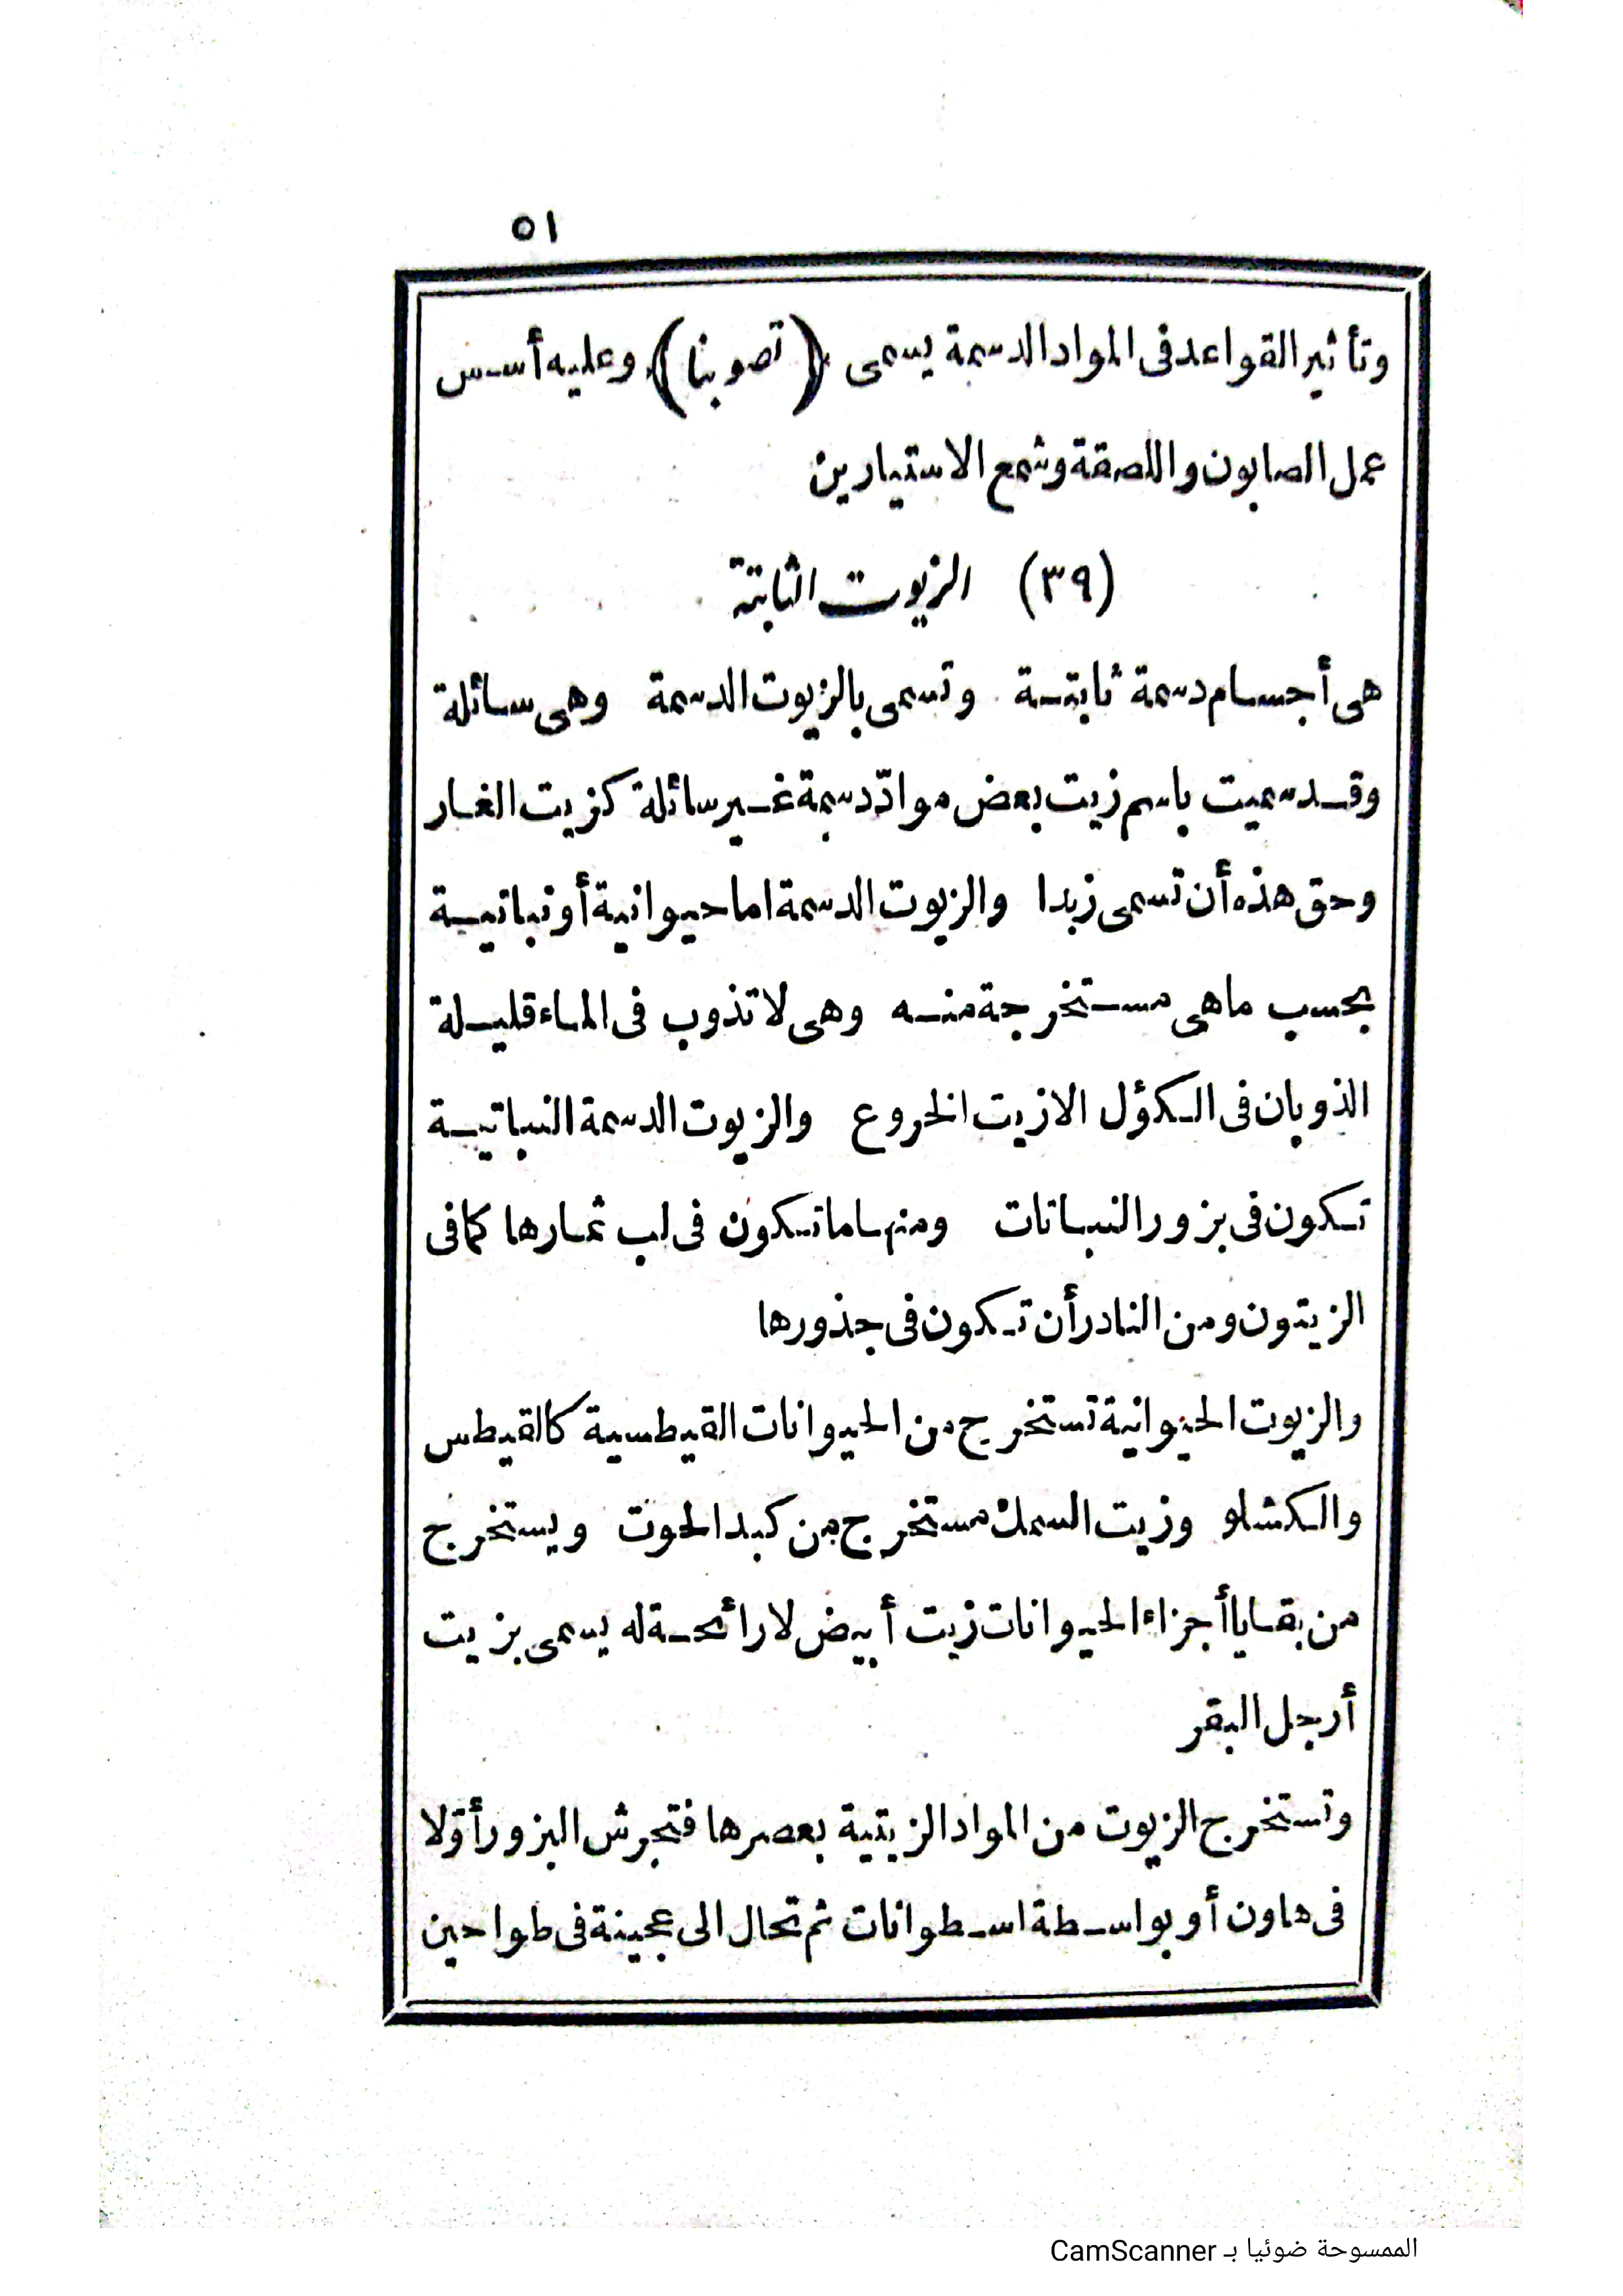 ٥١
وتأثير القواعد فى المواد الدسمة يسمى (تصوبنا) وعليه أسس
عمل الصابون واللصقة وشمع الاستيارين
(٣٩) الزيوت الثابتة
هى أجسام دسمة ثابتة وتسمى بالزيوت الدسمة وهى سائلة
وقد سميت باسم زيت بعض موادّ دسمة غير سائلة كزيت الغار
وحق هذه أن تسمى زبدا والزيوت الدسمة اما حيوانية أو نباتية
بحسب ماهى مستخرجة منه وهى لا تذوب فى الماء قليلة
الذوبان فى الكؤل الا زيت الخروع والزيوت الدسمة النباتية
تكون فى بزور النباتات ومنها ما تكون فى لب ثمارها كما فى
الزيتون ومن النادر أن تكون فى جذورها
والزيوت الحيوانية تستخرج من الحيوانات القيطسية كالقيطس
والكشلو وزيت السمك مستخرج من كبد الحوت ويستخرج
من بقايا أجزاء الحيوانات زيت أبيض لا رائحة له يسمى بزيت
أرجل البقر
وتستخرج الزيوت من المواد الزيتية بعصرها فتجرش البزور أوّلا
فى هاون أو بواسطة اسطوانات ثم تحال الى عجينة فى طواحين
الممسوحة ضوئيا بـ CamScanner